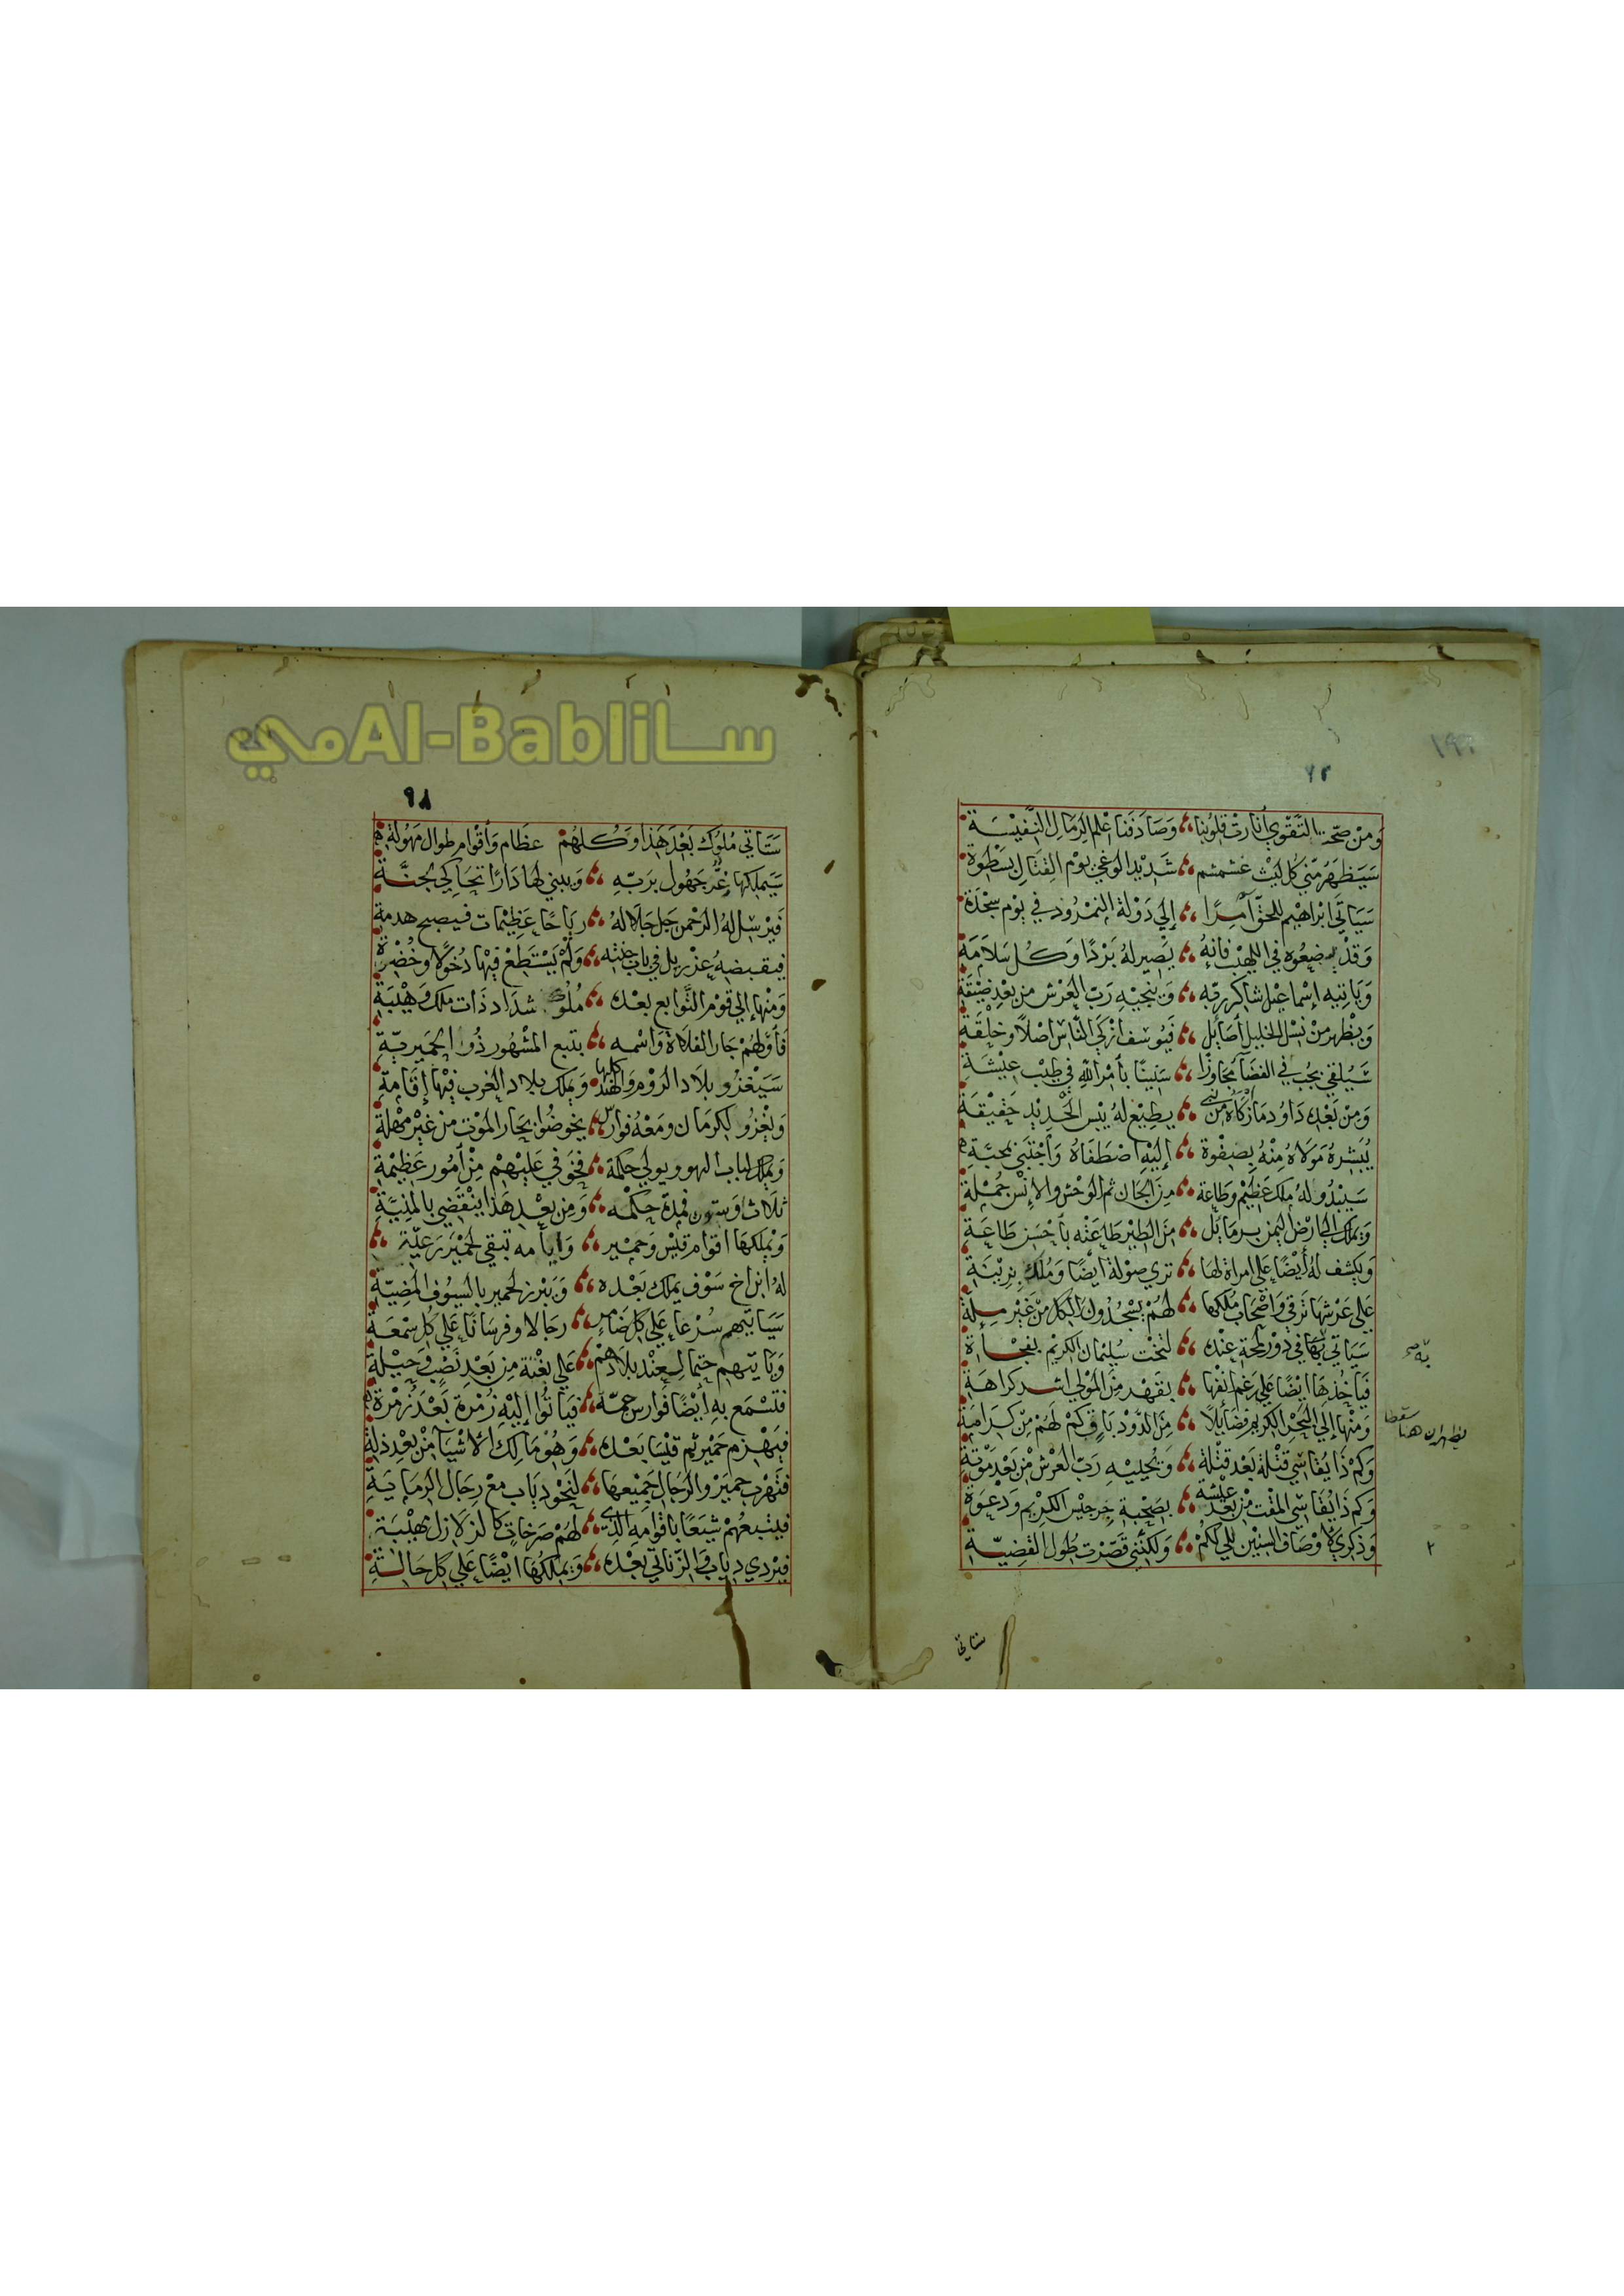 ١٩٢
٩٢
وَمنْ صحّة التَّقوي أنارتْ قلوبُنا وَصَادَفنا عِلم الرمَالِ النَّفيسَة
سَيَظهَرُ منّي كل ليْث غشمشم شَديْد الوغي يوْم القِتَالِ بسَطْوة
سَيَأتي ابْراهيْم للحقّ آمِرًا إلي دَوْلة النمْرُود في يوْم سجْدَة
وَقدْ يضعُوه في اللهْب فانهُ يَصير لهُ بَرْدًا وَكُل سَلاَمَة
وَيَاتيه إسْماعيْل شاكر ربّه وَينجيْهِ رَبّ العَرْش من بعْدِ ضيْقة
وَيظْهر منْ نسْل الخليْل أصَايل فيُوسف ازْكَي النّاس اصْلاً وخلْقَة
سَيُلقي بجُب في الفضَآ مُجاوزًا سَنينًا بأمْر اللهِ في طيْب عيْشَة
وَمن بَعْده دَاوُد مَا أزكاهُ منْ نبي يطيْع لهُ يبْس الحَديْد حَقيْقَة
يُبَشرهُ مَوْلاهُ منْهُ بصفْوة إليْهِ اصْطَفاهُ وَاجْتبَي بمحبَّة
سَيبْدُو لهُ ملك عَظيْم وطَاعة منَ الجَان ثم الوَحْش والإنْس جُمْلة
وَيملك الي ارْض اليمن بِرمَايل منَ الطيْر طَاعَتْه بأحْسَن طَاعَة
وَيكشف لهُ أيْضًا عَلي امراة لهَا تري صوْلة أيضًا وَمُلك بزيْنَة
عَلي عَرْشهَا تَرقي وَاصْحَاب مُلكها لهُمْ يسْجُدُون الكل منْ غَيْر مِلة
سَيَاتي بهَا في دوْر لمحة عنْده لتخْت سُليْمان الكريْم بفجْأة
فَياخُذهَا ايْضًا عَلي رَغم انفهَا بقَهْر منَ المَوْلي اشد كراهَة
وَمنْها إلي البَحْر الكريْم فضَايلاً منَ الدّوْد باقٍ كمْ لَهُمْ منْ كرَامَة
وَكمْ ذَا يُقاسي قتْلة بَعْد قتْلة وَيحْييْهِ رَبّ العَرْش منْ بَعْد مَوْتة
وَكم ذَا يُقاسي المقْت منْ بَعْد عيْشه بصَحْبة جرجيْس الكريْم وَدَعْوَة
وَذكري لأوْصَاف السنيْن لكمْ وَلكنّني قصّرْت طُول القضيّة
يظهر ان هنا سقطا
٢
ستاتي
٩٨
سَتَاتي مُلوُك بَعْد هَذا وَكُلهُمْ عظَام وَأقْوام طوال مَهُولة
سَيَملكها غرٌّ جَهُول برَبّهِ وَيبني لهَا دَارًا تحَاكي لجنَّة
فَيرْسِل لهُ الرّحْمن جَل جَلالهُ ريَاحًا عَظيْمات فيصبح هدمة
فيقبضهُ عزْريل في باب جَنّته وَلمْ يَسْتَطعْ فيْها دُخولاً وخُضْرة
وَمنْها إلي قوْم التَّوابع بعْده مُلوُك شدَاد ذَات ملك وَهْيبَة
فأوّلهُمْ جَار الفلاة وَاسْمه بتبع المشْهُور ذُو الحميريّة
سَيَغزُو بلاَد الرّوْم وَالهنْد كلها وَيملك بلاد الغرب فيْها إقَامَة
وَيغْزُو لكرمَان وَمَعْهُ فوارسٌ يخوضُوا بحَار الموْت منْ غيْر مهْلة
وَيملك لباب الهو ويولي حكمة فخوَفي عَليْهمْ منْ أمُور عَظيْمة
ثلاث وَستون فمدّة حكْمه وَمن بعْد هَذا ينْقَضي بالمنيَّة
وَيملكهَا اقوام قيْس وَحميْر وَايأمه تبقي لحميْر رَعيّة
لهُ ابن اخ سَوْف يملك بَعْده وَيَبْرز لحمير بالسيُوف المضيّة
سَيَاتيْهم سُرْعا عَلي كل ضَامرٍ رجَالا وفرسَانًا عَلي كُل سُمْعَة
وَيَاتيْهم حتما لعنْد بلادهمْ عَلي بغْتة من بَعْد نَصْب وَحيْلة
فتسْمَع بهِ أيْضًا فوَارس جمّة فيَاتُوا إليْهِ زُمْرة بَعْدَ زُمْرة
فيَهْزم حَميْر ثم قيْسًا بَعْده وَهُوْ مَالِك الأشْيَآ منْ بعْد ذلة
فتَهْرب حمْير والرّجَال جَميْعهَا لنَحْو دياب معْ رجَال الرّمَاية
فيتبعُهمْ شيَعًا باقوامه الذي لهُمْ صَرخاتٍ كالزلازل بهيْبَة
فيرْدي دياب وَالزّناتي بعْده وَيملكُها ايْضًا عَلي كل حَالة
سـاAl-Babliمي